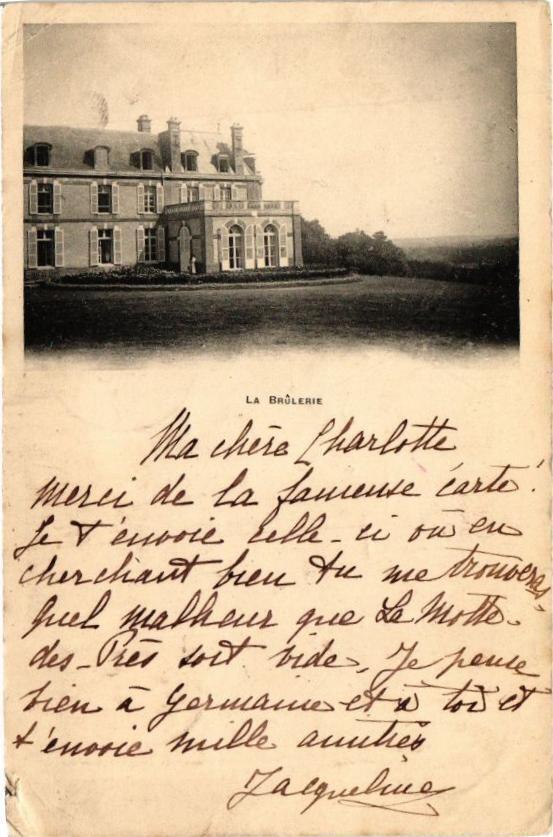 LA BRÛLERIE
Ma chère Charlotte
merci de la fameuse carte!
Je t'envoie celle-ci où en
cherchant bien tu me trouveras
Quel malheur que La Motte-
des-Près soit vide, Je pense
bien à Germaine et à toi et
t'envoie mille amitiés
Jacqueline